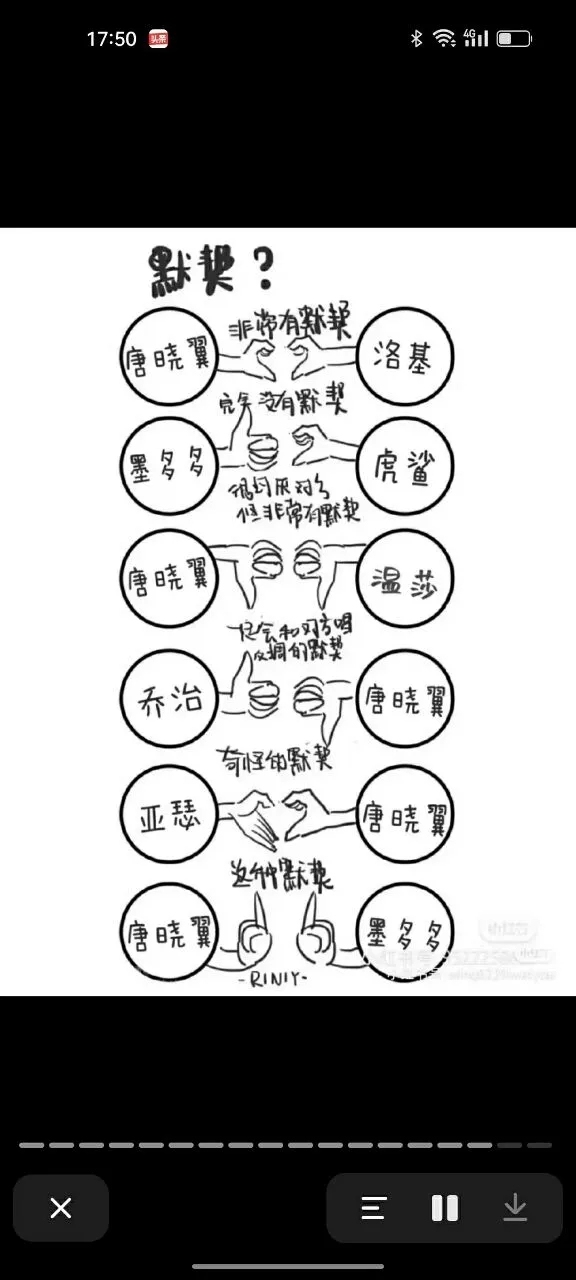 17:50
头条
4G
默契？
非常有默契
唐晓翼
洛基
完全没有默契
墨多多
虎鲨
很讨厌对方
但非常有默契
唐晓翼
温莎
总会和对方唱
反调的默契
乔治
唐晓翼
奇怪的默契
亚瑟
唐晓翼
这种默契
唐晓翼
墨多多
-RINIY-
小红书
小红书号